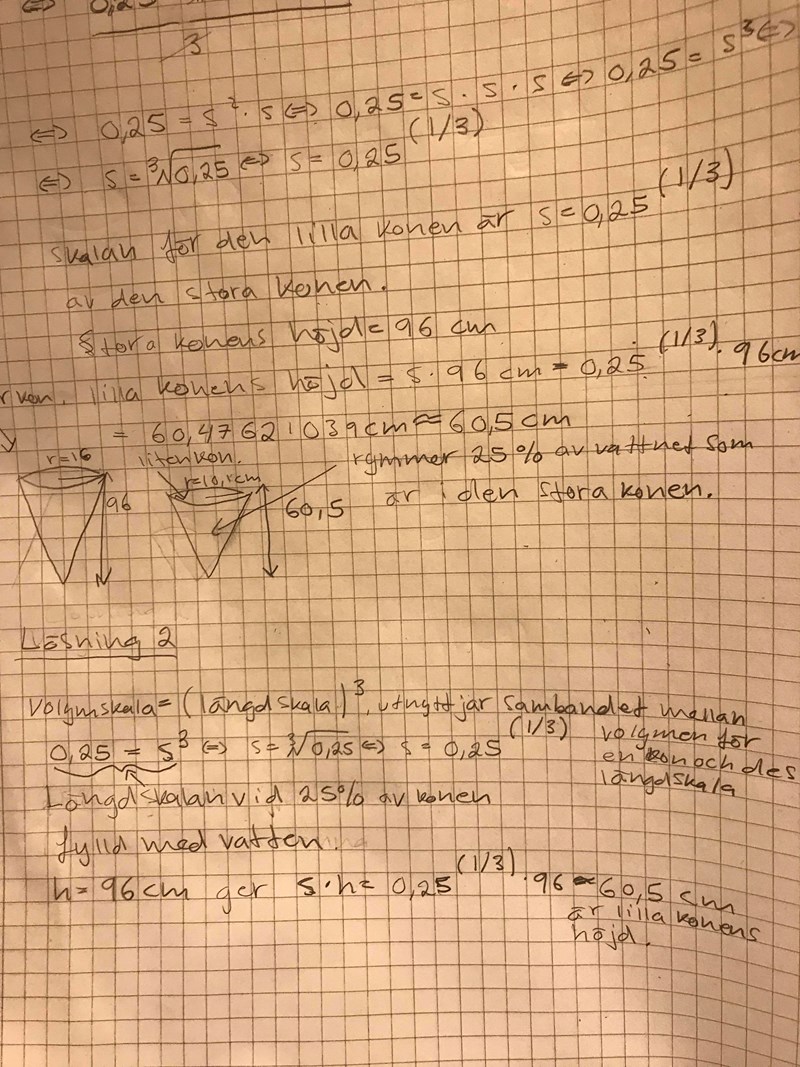 3
⇔ 0,25 = s²·s ⇔ 0,25 = s·s·s ⇔ 0,25 = s³ ⇔
⇔ s = ³√0,25 ⇔ s = 0,25^(1/3)
skalan för den lilla konen är s = 0,25^(1/3)
av den stora konen.
Stora konens höjd = 96 cm
lilla konens höjd = s·96 cm = 0,25^(1/3)·96cm
= 60,47621039cm ≈ 60,5 cm
r=16 liten kon. rymmer 25% av vattnet som
r=10,1cm
96 60,5 är i den stora konen.
Lösning 2
Volymskala = (längdskala)³, utnyttjar sambandet mellan
volymen för
en kon och des
längdskala
0,25 = s³ ⇔ s = ³√0,25 ⇔ s = 0,25^(1/3)
Längdskalan vid 25% av konen
fylld med vatten.
h = 96 cm ger s·h = 0,25^(1/3)·96 ≈ 60,5 cm
är lilla konens
höjd.